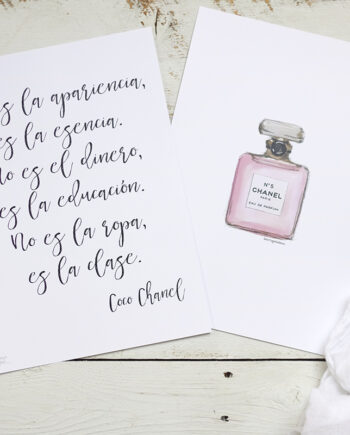 es la apariencia,
es la esencia.
No es el dinero,
es la educación.
No es la ropa,
es la clase.
Coco Chanel
Nº5
CHANEL
PARIS
EAU DE PARFUM